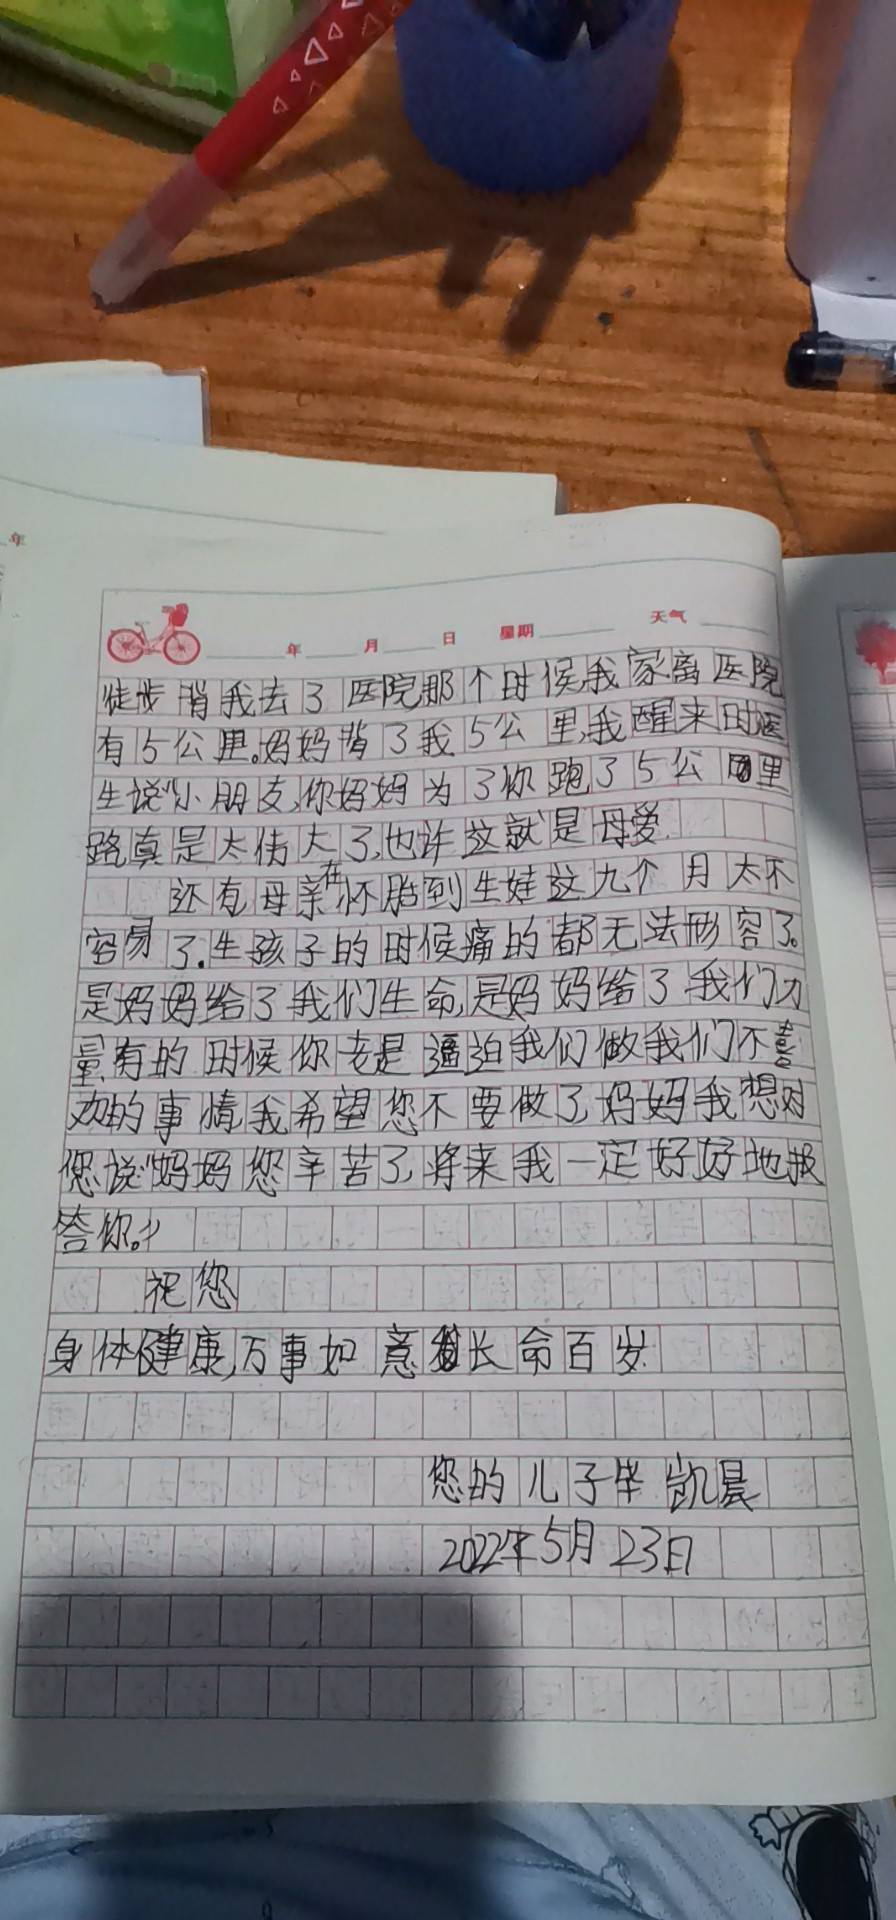 年
年 月 日 星期 天气
徒步背我去了医院那个时候,我家离医院
有5公里。妈妈背了我5公里,我醒来时医
生说“小朋友,你妈妈为了你跑了5公里
路真是太伟大了,也许这就是母爱.
还有母亲在怀胎到生娃这九个月太不
容易了.生孩子的时候痛的都无法形容了。
是妈妈给了我们生命,是妈妈给了我们力
量,有的时候你老是逼迫我们做我们不喜
欢的事情,我希望您不要做了,妈妈我想对
您说“妈妈您辛苦了,将来我一定好好地报
答你。”
祝您
身体健康,万事如意 长命百岁.
您的儿子毕凯晨
2022年5月23日